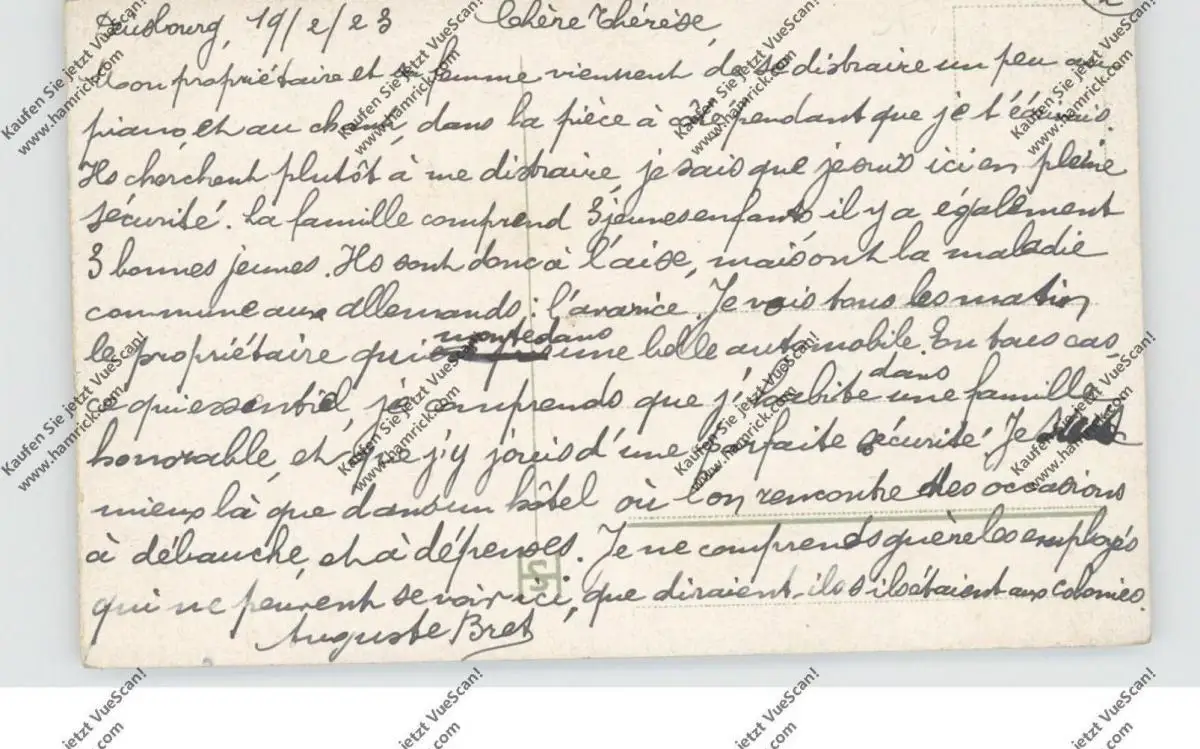 Duisbourg, 19/2/23 Chère Thérèse,
Mon propriétaire et sa femme viennent de se distraire un peu au
piano et au chant, dans la pièce à côté pendant que je t'écrivais.
Ils cherchent plutôt à me distraire, je sais que je suis ici en pleine
sécurité. La famille comprend 3 jeunes enfants, il y a également
3 bonnes jeunes. Ils sont donc à l'aise, mais ont la maladie
commune aux allemands : l'avarice. Je vois tous les matin
le propriétaire qui monte dans une belle automobile. En tous cas,
ce qui essentiel, je comprends que j'habite dans une famille
honorable, et que j'y jouis d'une parfaite sécurité. Je suis
mieux là que dans un hôtel où l'on rencontre des occasions
à débauche, et à dépenses. Je ne comprends guère les employés
qui ne peuvent se voir ici, que diraient-ils s'ils étaient aux colonies.
Auguste Bret
Kaufen Sie jetzt VueScan!
www.hamrick.com